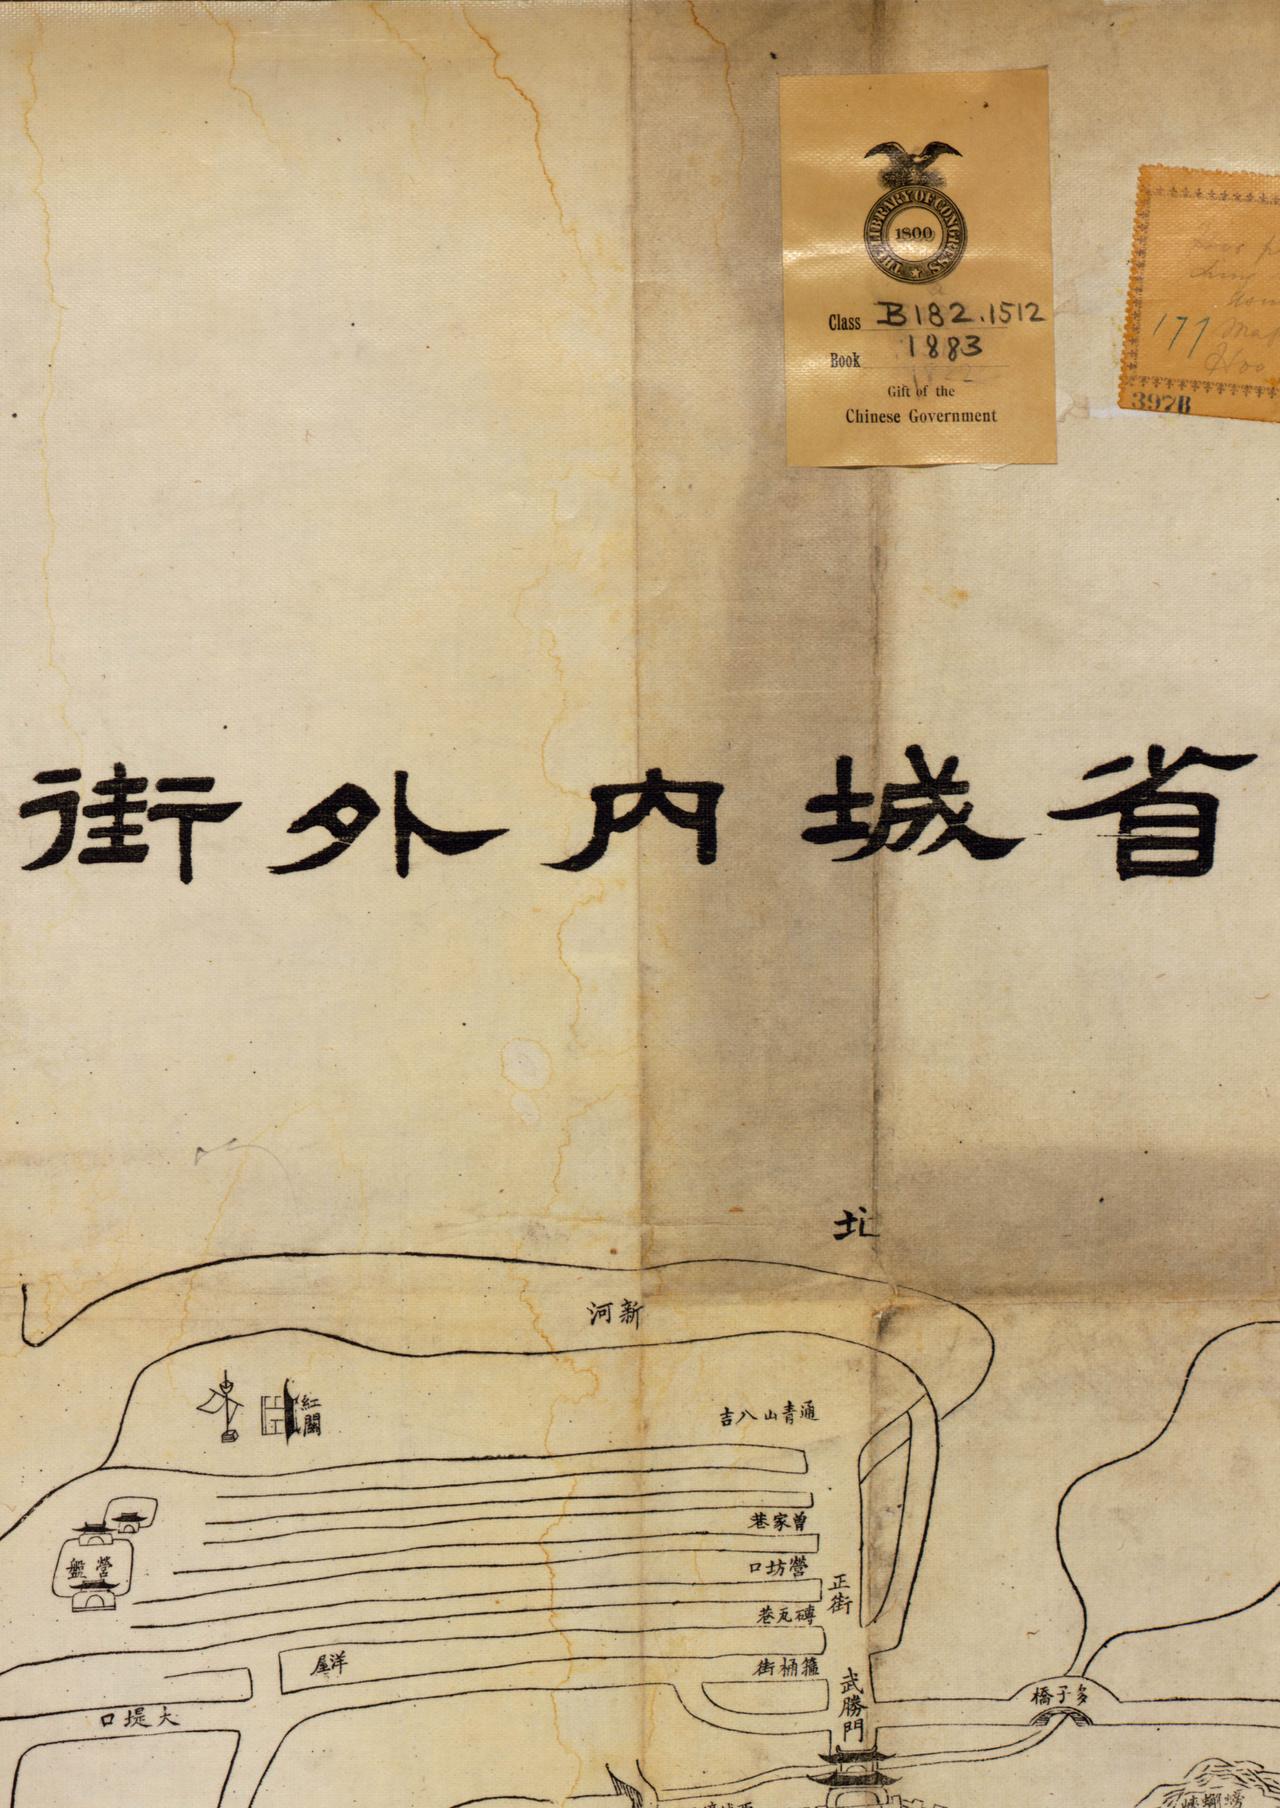 THE LIBRARY OF CONGRESS
1800
Class B182.1512
Book 1883
Gift of the
Chinese Government
177 Map
397B
省城內外街
北
新河
紅關
通青山八吉
曾家巷
營坊口
營盤
正街
磚瓦巷
洋屋
箍桶街
武勝門
多子橋
大堤口